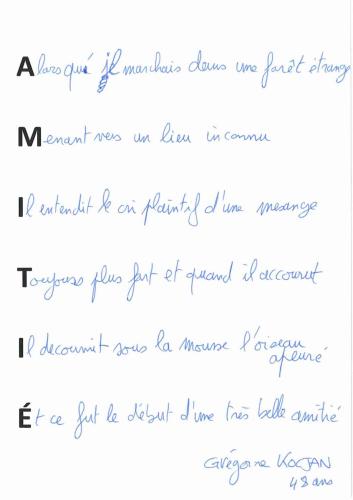 Alors qu'il marchais dans une forêt étrange
Menant vers un lieu inconnu
Il entendit le cri plaintif d'une mesange
Toujours plus fort et quand il accourut
Il decouvrit sous la mousse l'oiseau
apeuré
Et ce fut le début d'une très belle amitié
Grégoire KOCJAN
48 ans